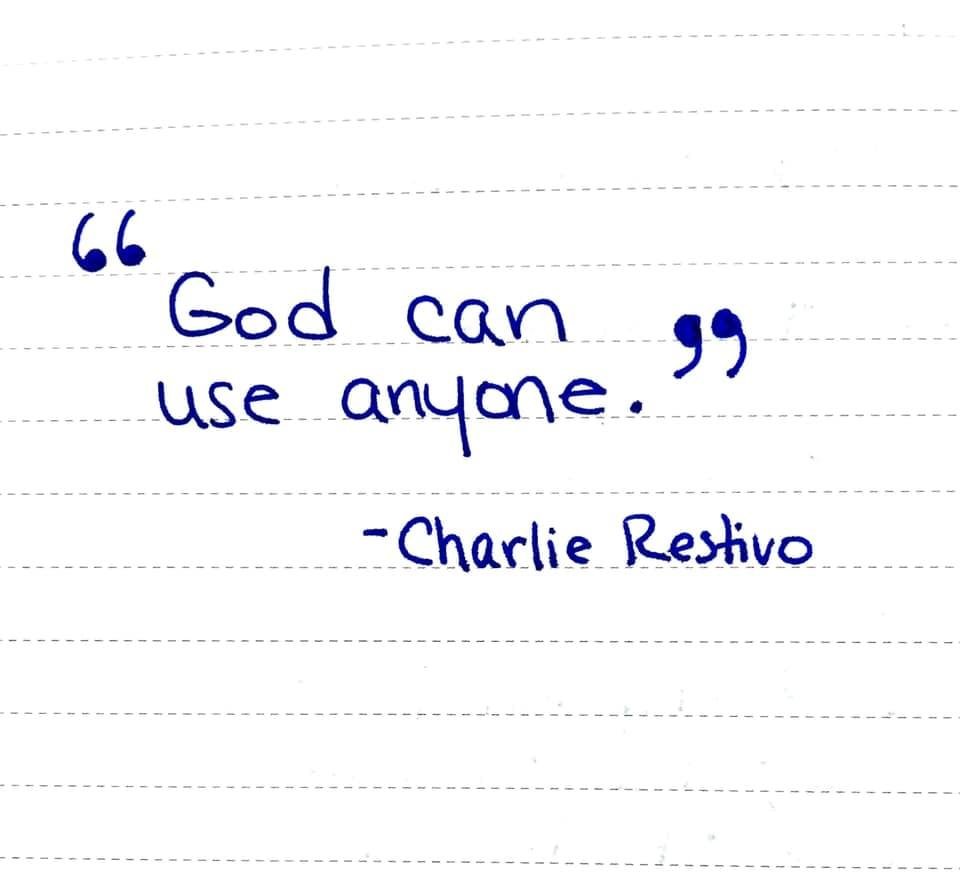 “God can
use anyone.”
-Charlie Restivo